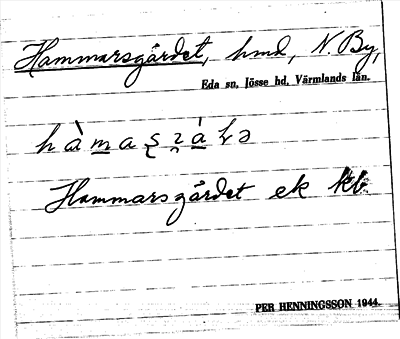 Hammarsgärdet, hmd, N. By,
Eda sn, Jösse hd, Värmlands län.
Hammarsgärdet ek
PER HENNINGSSON 1944.